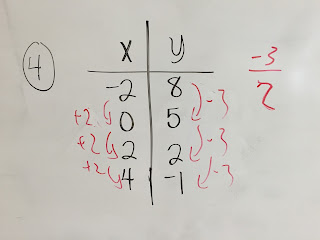 4
x y
-2 8
+2 0 5 -3
+2 2 2 -3
+2 4 -1 -3
-3
2